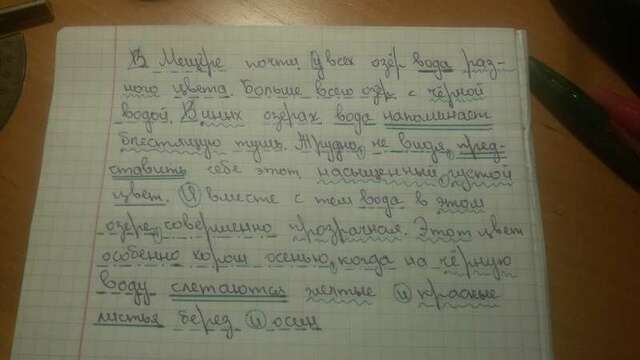 В Мещёре почти у всех озёр вода раз-
ного цвета. Больше всего озёр с чёрной
водой. В иных озерах вода напоминает
блестящую тушь. Трудно, не видя, пред-
ставить себе этот насыщенный, густой
цвет. И вместе с тем вода в этом
озере совершенно прозрачная. Этот цвет
особенно хорош осенью, когда на чёрную
воду слетаются желтые и красные
листья берёз и осин